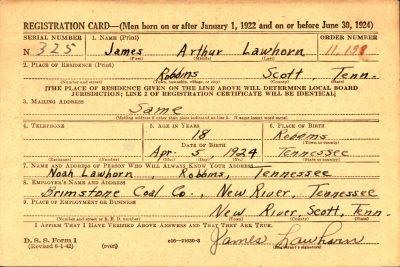 REGISTRATION CARD—(Men born on or after January 1, 1922 and on or before June 30, 1924)
SERIAL NUMBER 1. NAME (Print) ORDER NUMBER
N 325 James Arthur Lawhorn
(First) (Middle) (Last)
2. PLACE OF RESIDENCE (Print)
Robbins Scott, Tenn.
(Number and street) (Town, township, village, or city) (County) (State)
[THE PLACE OF RESIDENCE GIVEN ON THE LINE ABOVE WILL DETERMINE LOCAL BOARD
JURISDICTION; LINE 2 OF REGISTRATION CERTIFICATE WILL BE IDENTICAL]
3. MAILING ADDRESS
Same
(Mailing address if other than place indicated on line 2. If same insert word same)
4. TELEPHONE 5. AGE IN YEARS 6. PLACE OF BIRTH
18 Robbins
DATE OF BIRTH (Town or county)
Apr. 5, 1924 Tennessee
(Exchange) (Number) (Mo.) (Day) (Yr.) (State or country)
7. NAME AND ADDRESS OF PERSON WHO WILL ALWAYS KNOW YOUR ADDRESS
Noah Lawhorn, Robbins, Tennessee
8. EMPLOYER'S NAME AND ADDRESS
Brimstone Coal Co., New River, Tennessee
9. PLACE OF EMPLOYMENT OR BUSINESS
New River, Scott, Tenn.
(Number and street or R. F. D. number) (Town) (County) (State)
I AFFIRM THAT I HAVE VERIFIED ABOVE ANSWERS AND THAT THEY ARE TRUE.
D. S. S. Form 1
(Revised 6-1-42) (over) James Lawhorn
(Registrant's signature)